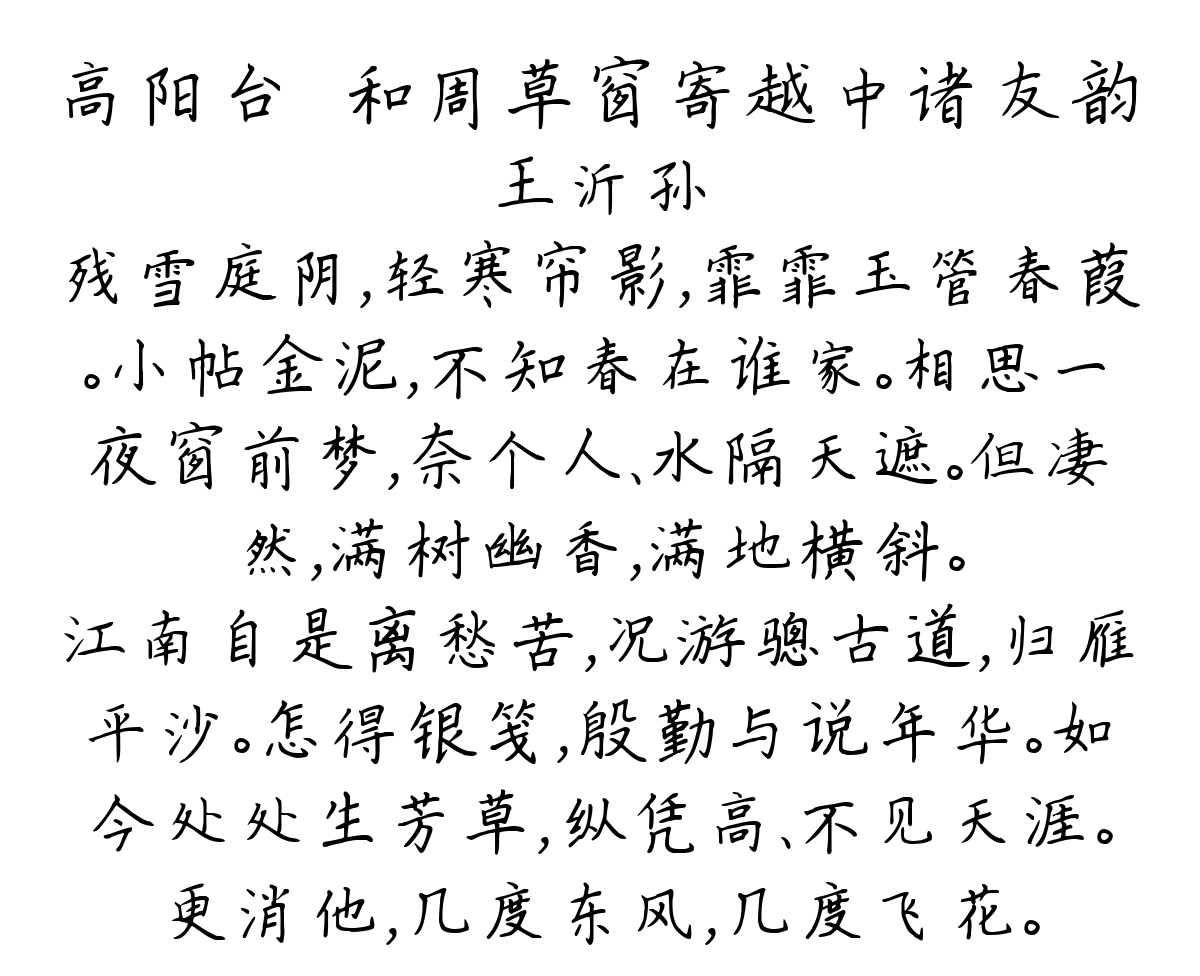 高阳台 和周草窗寄越中诸友韵
王沂孙
残雪庭阴,轻寒帘影,霏霏玉管春葭
。小帖金泥,不知春在谁家。相思一
夜窗前梦,奈个人、水隔天遮。但凄
然,满树幽香,满地横斜。
江南自是离愁苦,况游骢古道,归雁
平沙。怎得银笺,殷勤与说年华。如
今处处生芳草,纵凭高、不见天涯。
更消他,几度东风,几度飞花。